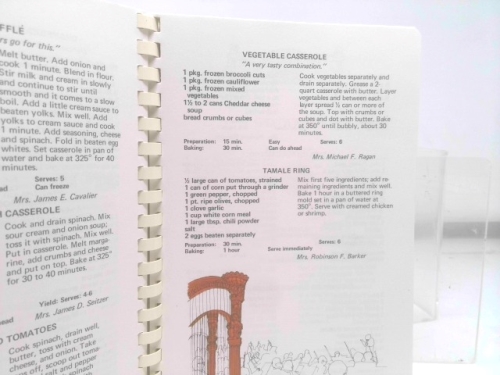 FFLÉ
rs go for this."
Melt butter. Add onion and
cook 1 minute. Blend in flour.
Stir milk and cream in slowly
and continue to stir until
smooth and it comes to a slow
boil. Add a little cream sauce to
beaten yolks. Mix well. Add
yolks to cream sauce and cook
1 minute. Add seasoning, cheese
and spinach. Fold in beaten egg
whites. Set casserole in pan of
water and bake at 325° for 40
minutes.
Serves: 5
Can freeze
Mrs. James E. Cavalier
CASSEROLE
Cook and drain spinach. Mix
sour cream and onion soup;
toss it with spinach. Mix well.
Put in casserole. Melt marga-
rine, add crumbs and cheese
and put on top. Bake at 325°
for 30 to 40 minutes.
Yield: Serves: 4-6
Mrs. James D. Seitzer
TOMATOES
Cook spinach, drain well,
butter, toss with cream
cheese, and onion. Take
off, scoop out toma
salt and pepper
spinach
VEGETABLE CASSEROLE
"A very tasty combination."
1 pkg. frozen broccoli cuts
1 pkg. frozen cauliflower
1 pkg. frozen mixed
vegetables
1½ to 2 cans Cheddar cheese
soup
bread crumbs or cubes
Cook vegetables separately and
drain separately. Grease a 2-
quart casserole with butter. Layer
vegetables and between each
layer spread ½ can or more of
the soup. Top with crumbs or
cubes and dot with butter. Bake at
350° until bubbly, about 30
minutes.
Preparation: 15 min. Easy Serves: 8
Baking: 30 min. Can do ahead
Mrs. Michael F. Ragen
TAMALE RING
½ large can of tomatoes, strained
1 can of corn put through a grinder
1 green pepper, chopped
1 pt. ripe olives, chopped
1 clove garlic
1 cup white corn meal
1 large tbsp. chili powder
salt
2 eggs beaten separately
Mix first five ingredients; add re-
maining ingredients and mix well.
Bake 1 hour in a buttered ring
mold set in a pan of water at
350°. Serve with creamed chicken
or shrimp.
Preparation: 30 min. Serves: 6
Baking: 1 hour Serve immediately
Mrs. Robinson F. Barker